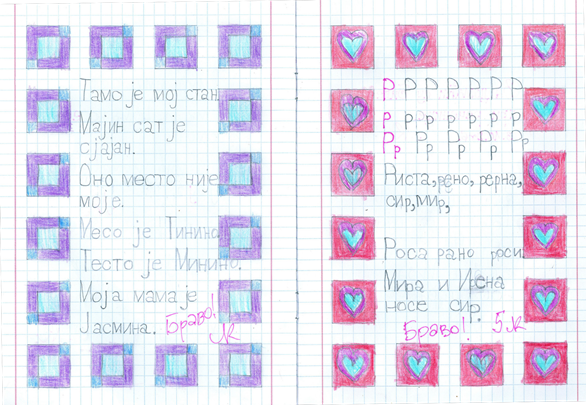 Тамо је мој стан.
Мајин сат је
сјајан.
Оно место није
моје.
Месо је Тинино.
Тесто је Минино.
Моја мама је
Јасмина. Браво!
Р Р Р Р Р Р Р
р р р р р р р
Рр Рр Рр Рр Рр
Риста, рено, рерна,
сир, мир,
Роса рано роси.
Мира и Ирена
носе сир.
Браво! 5